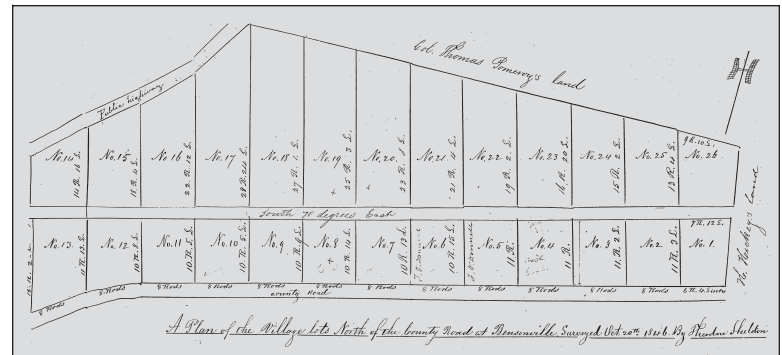 Col. Thomas Pomeroy's land
Public highway
No. 14
14 R. 16 L.
No. 15
18 R. 4 L.
No 16
22 R. 12 L.
No. 17
28 R. 24 L.
No. 18
27 R. 1 L.
No. 19
25 R. 3 L.
No. 20.
23 R. 1 L.
No. 21.
21 R. 4 L.
No. 22
19 R. 2 L.
No. 23
16 R. 20 L.
No. 24
15 R. 2 L.
No. 25
13 R. 4 L.
9 R. 10 L.
No. 26
South 70 degrees East
No. 13.
11 R. 12 L.
No. 12
10 R. 5 L.
No. 11
10 R. 5 L.
No. 10
10 R. 5 L.
No. 9
10 R. 9 L.
No. 8
10 R. 14 L.
No. 7
10 R. 13 L.
No. 6
10 R. 15 L.
No. 5
11 R.
No. 4
11 R.
No. 3
11 R. 2 L.
No. 2
11 R. 3 L.
9 R. 12 L.
No. 1.
land
8 Rods
8 Rods
8 Rods
8 Rods
8 Rods
8 Rods
8 Rods
8 Rods
8 Rods
8 Rods
8 Rods
8 Rods
6 R. 4
county Road
A Plan of the Village lots North of the County Road at Bensonville, Surveyed Oct. 20th 1846. By Theodore Sheldon